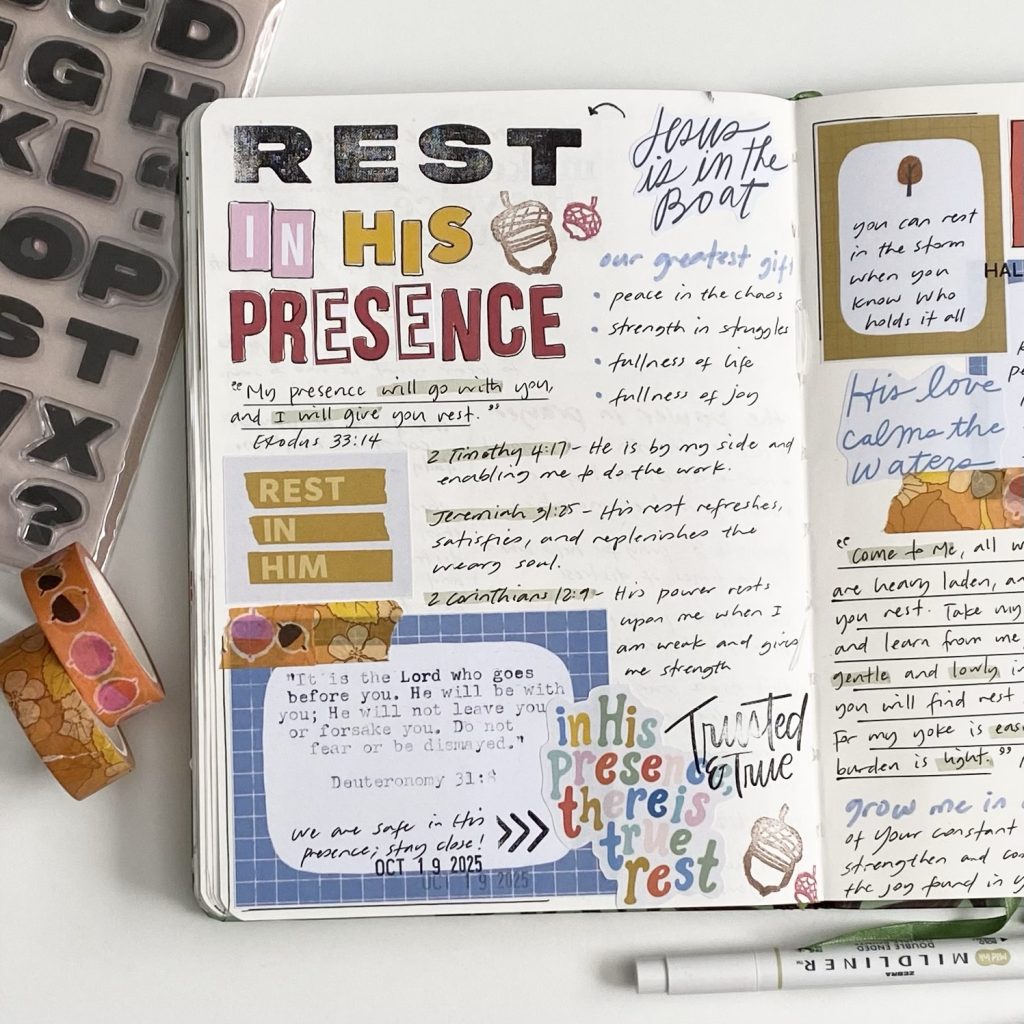 C D
G H
K L
O P
S T
X
?
REST
IN HIS
PRESENCE
"My presence will go with you,
and I will give you rest."
Exodus 33:14
REST
IN
HIM
"It is the Lord who goes
before you. He will be with
you; He will not leave you
or forsake you. Do not
fear or be dismayed."
Deuteronomy 31:8
we are safe in His
presence; stay close!
OCT 19 2025
OCT 19 2025
Jesus
is in the
Boat
our greatest gift
• peace in the chaos
• strength in struggles
• fullness of life
• fullness of joy
2 Timothy 4:17 - He is by my side and
enabling me to do the work.
Jeremiah 31:25 - His rest refreshes,
satisfies, and replenishes the
weary soul.
2 Corinthians 12:9 - His power rests
upon me when I
am weak and giving
me strength
in His
presence,
there is
true
rest
Trusted
& True
you can rest
in the storm
when you
know who
holds it all
HAL
His love
calms the
waters
"Come to Me, all w
are heavy laden, an
you rest. Take my
and learn from me
gentle and lowly i
you will find rest
For my yoke is eas
burden is light."
grow me in
of your constant
strengthen and co
the joy found in y
MILDLINER™
DOUBLE ENDED
ZEBRA